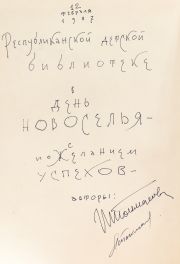 12
февраля
1987
Республиканской детской
библиотеке
в
день
новоселья –
с
пожеланием
успехов –
авторы: